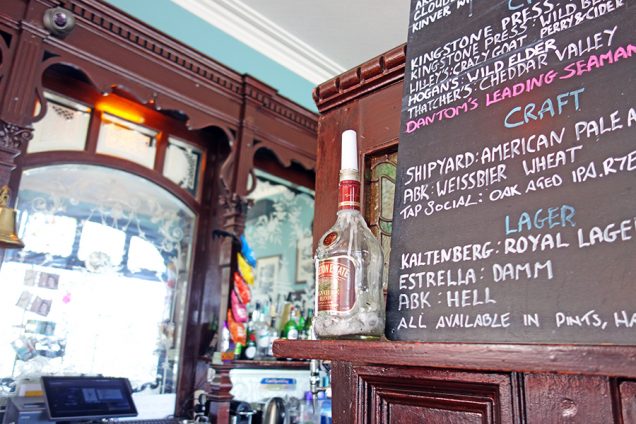 KINVER
KINGSTONE PRESS:
KINGSTONE PRESS: WILD BE
LILLEY'S: CRAZY GOAT. PERRY & CIDER
HOGAN'S: WILD ELDER
THATCHER'S: CHEDDAR VALLEY
DANTOM'S LEADING SEAMAN
CRAFT
SHIPYARD: AMERICAN PALE A
ABK: WEISSBIER WHEAT
TAP SOCIAL: OAK AGED IPA. RYE
LAGER
KALTENBERG: ROYAL LAGER
ESTRELLA: DAMM
ABK: HELL
ALL AVAILABLE IN PINTS, HA
ESTATE